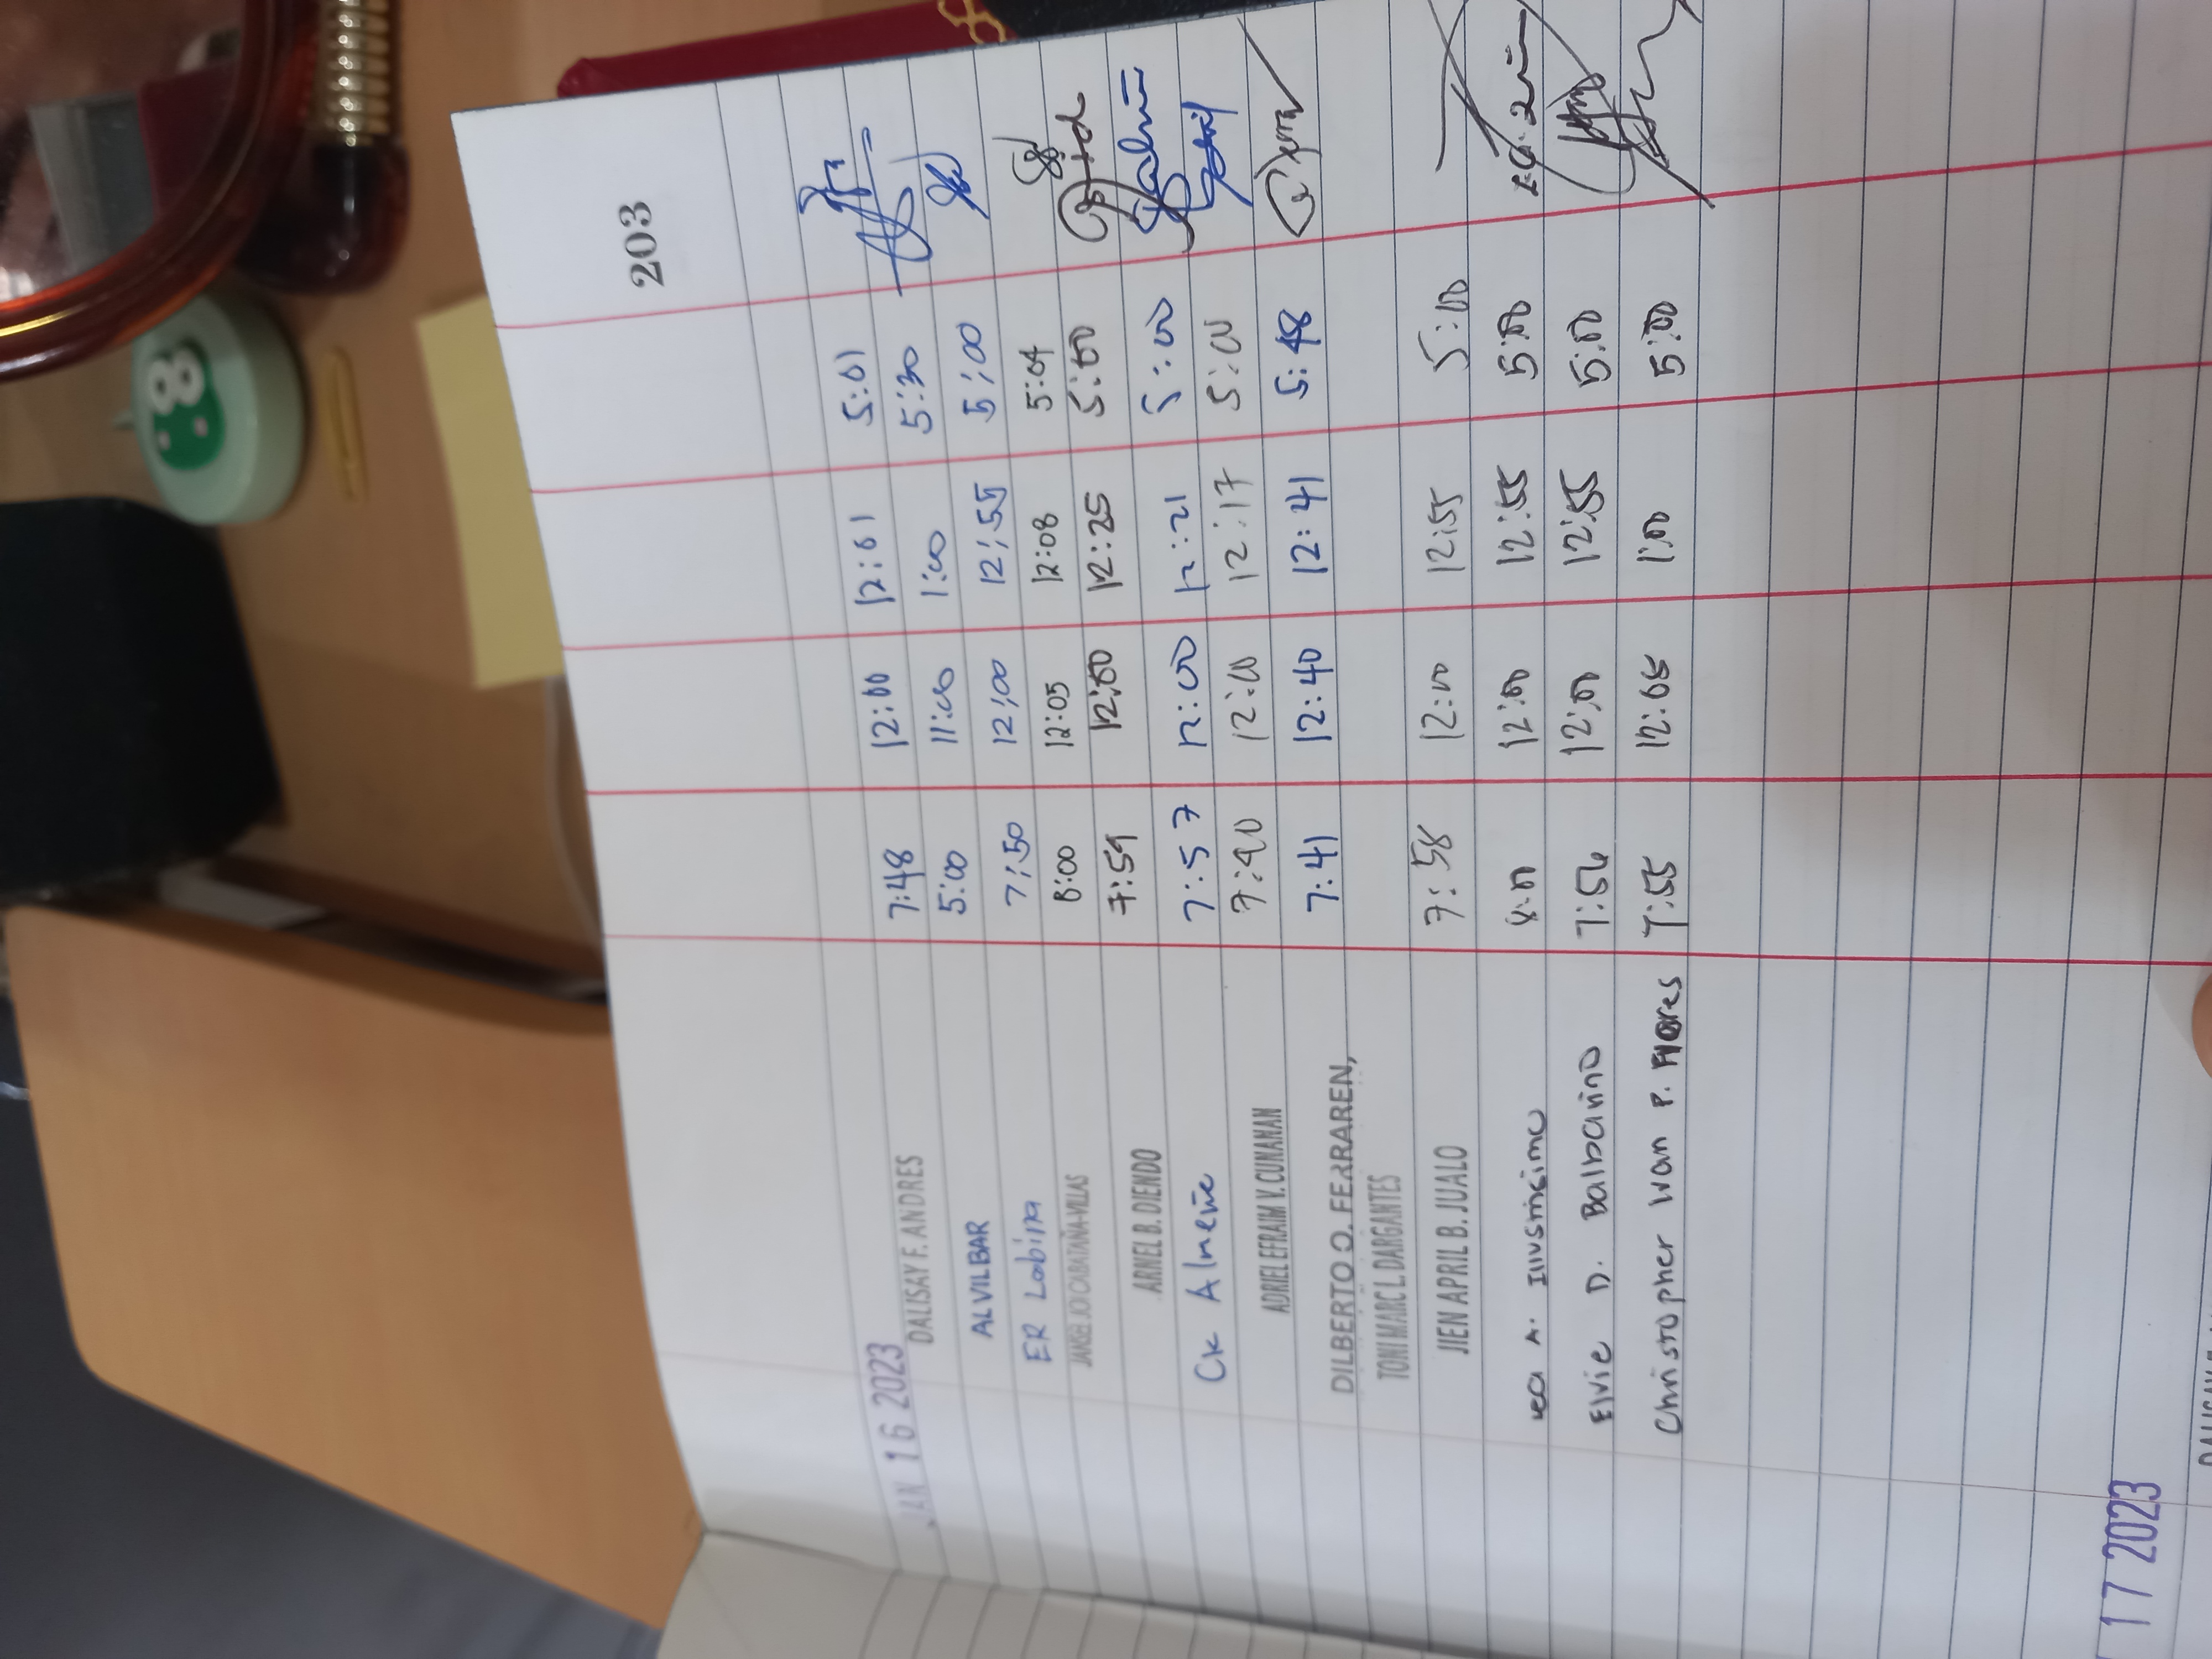 203
JAN 16 2023
DALISAY F. ANDRES 7:48 12:00 12:01 5:01
ALVILBAR 5:00 11:00 1:00 5:30
ER Labina 7:50 12:00 12:55 5:00
JANICE JOI CABATAÑA-VILLAS 8:00 12:05 12:08 5:04
ARNEL B. DIENDO 7:59 12:00 12:25 5:00
CK Almeñe 7:57 12:00 12:21 5:00
ADRIEL EFRAIM V. CUNANAN 7:40 12:00 12:17 5:00
DILBERTO O. FERRAREN, 7:41 12:40 12:41 5:48
TONI MARC L. DARGANTES
JIEN APRIL B. JUALO 7:58 12:00 12:55 5:00
A. Illustrisimo 8:00 12:00 12:55 5:00
Elvie D. Balbarino 7:56 12:00 12:55 5:00
Christopher Ivan P. Flores 7:55 12:05 1:00 5:00
17 2023